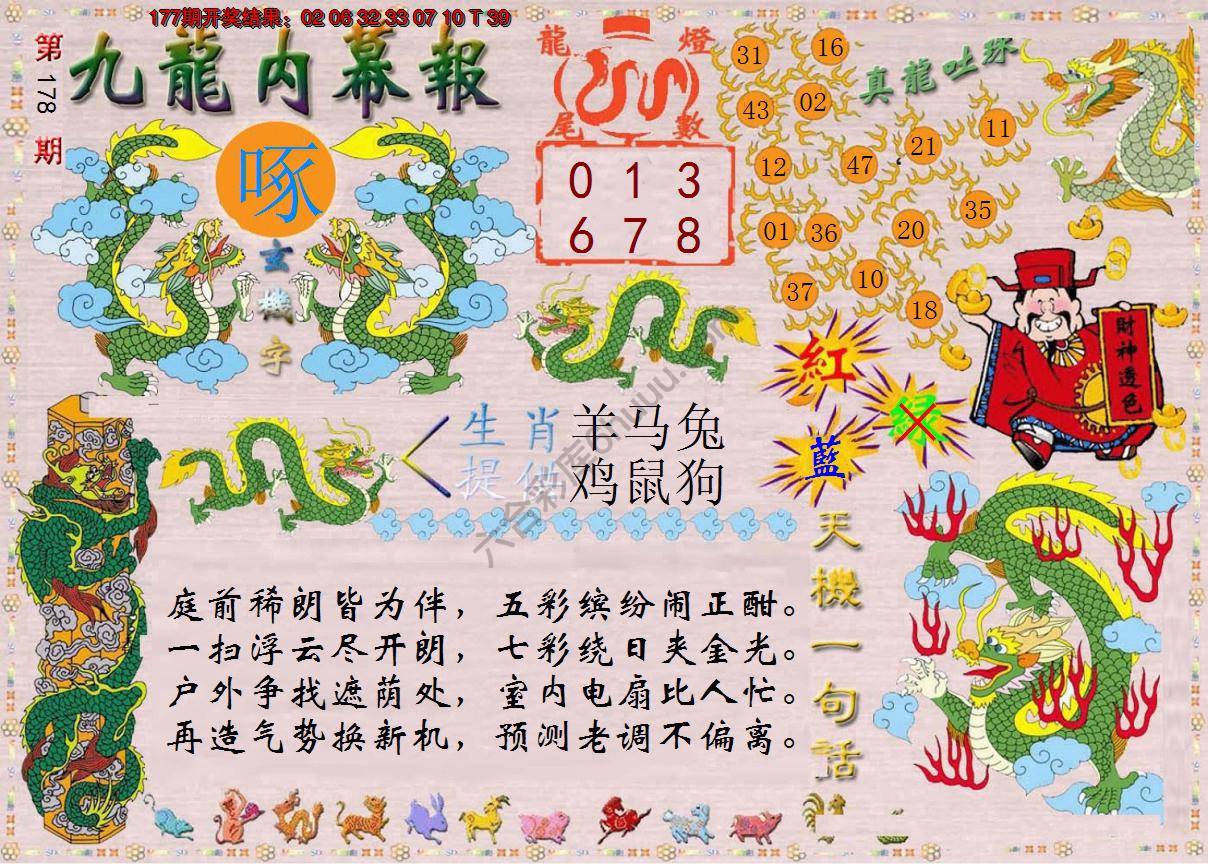 177期开奖结果：02 06 32 33 07 10 T 39
第178期
九龍内幕報
龍燈
尾數
0 1 3
6 7 8
真龍吐珠
31
16
43
02
12
47
21
11
01
36
20
35
37
10
18
啄
玄機字
紅
绿
藍
財神透色
生肖
羊马兔
提供
鸡鼠狗
六合彩库
庭前稀朗皆为伴，五彩缤纷闹正酣。
一扫浮云尽开朗，七彩绕日夹金光。
户外争找遮荫处，室内电扇比人忙。
再造气势换新机，预测老调不偏离。
天機一句話